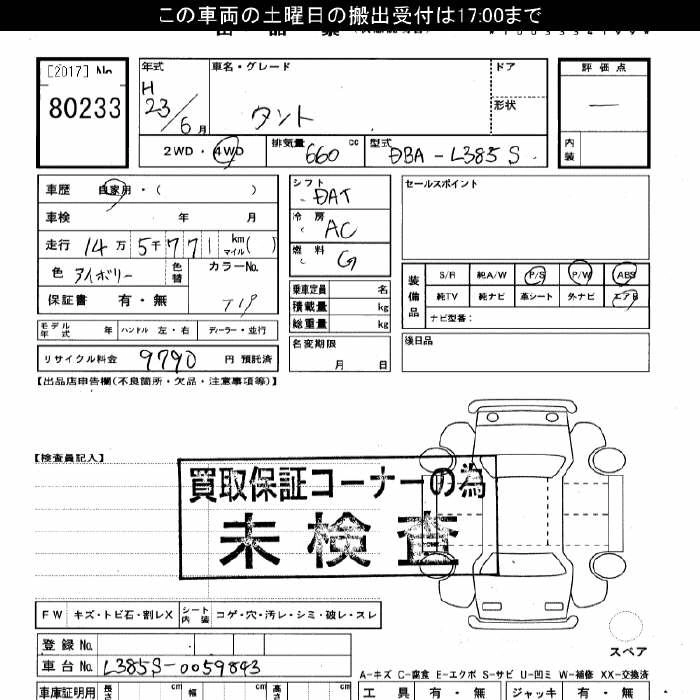 この車両の土曜日の搬出受付は17:00まで
[2017] No
80233
年式
H
23/6月
車名・グレード
タント
ドア
形状
評価点
—
内装
2WD・4WD
排気量 660 cc
型式 DBA-L385S
車歴 自家用・( )
車検 年 月
走行 14万5千771 km マイル( )
色 アイボリー 色替
カラーNo. T19
保証書 有・無
シフト DAT
冷房 AC
燃料 G
乗車定員 名
積載量 kg
総重量 kg
名変期限
月 日
セールスポイント
装備品
S/R 純A/W P/S P/W ABS
純TV 純ナビ 革シート 外ナビ エアB
ナビ型番:
後日品
モデル年式 年 ハンドル 左・右 ディーラー・並行
リサイクル料金 9790 円 預託済
【出品店申告欄(不良箇所・欠品・注意事項等)】
【検査員記入】
買取保証コーナーの為
未検査
FW キズ・トビ石・割レX シート内装 コゲ・穴・汚レ・シミ・破レ・スレ
スペア
登録No.
車台No. L385S-0059843
A-キズ C-腐食 E-エクボ S-サビ U-凹ミ W-補修 XX-交換済
車庫証明用 長さ cm 幅 cm 高さ cm
工具 有・無 ジャッキ 有・無